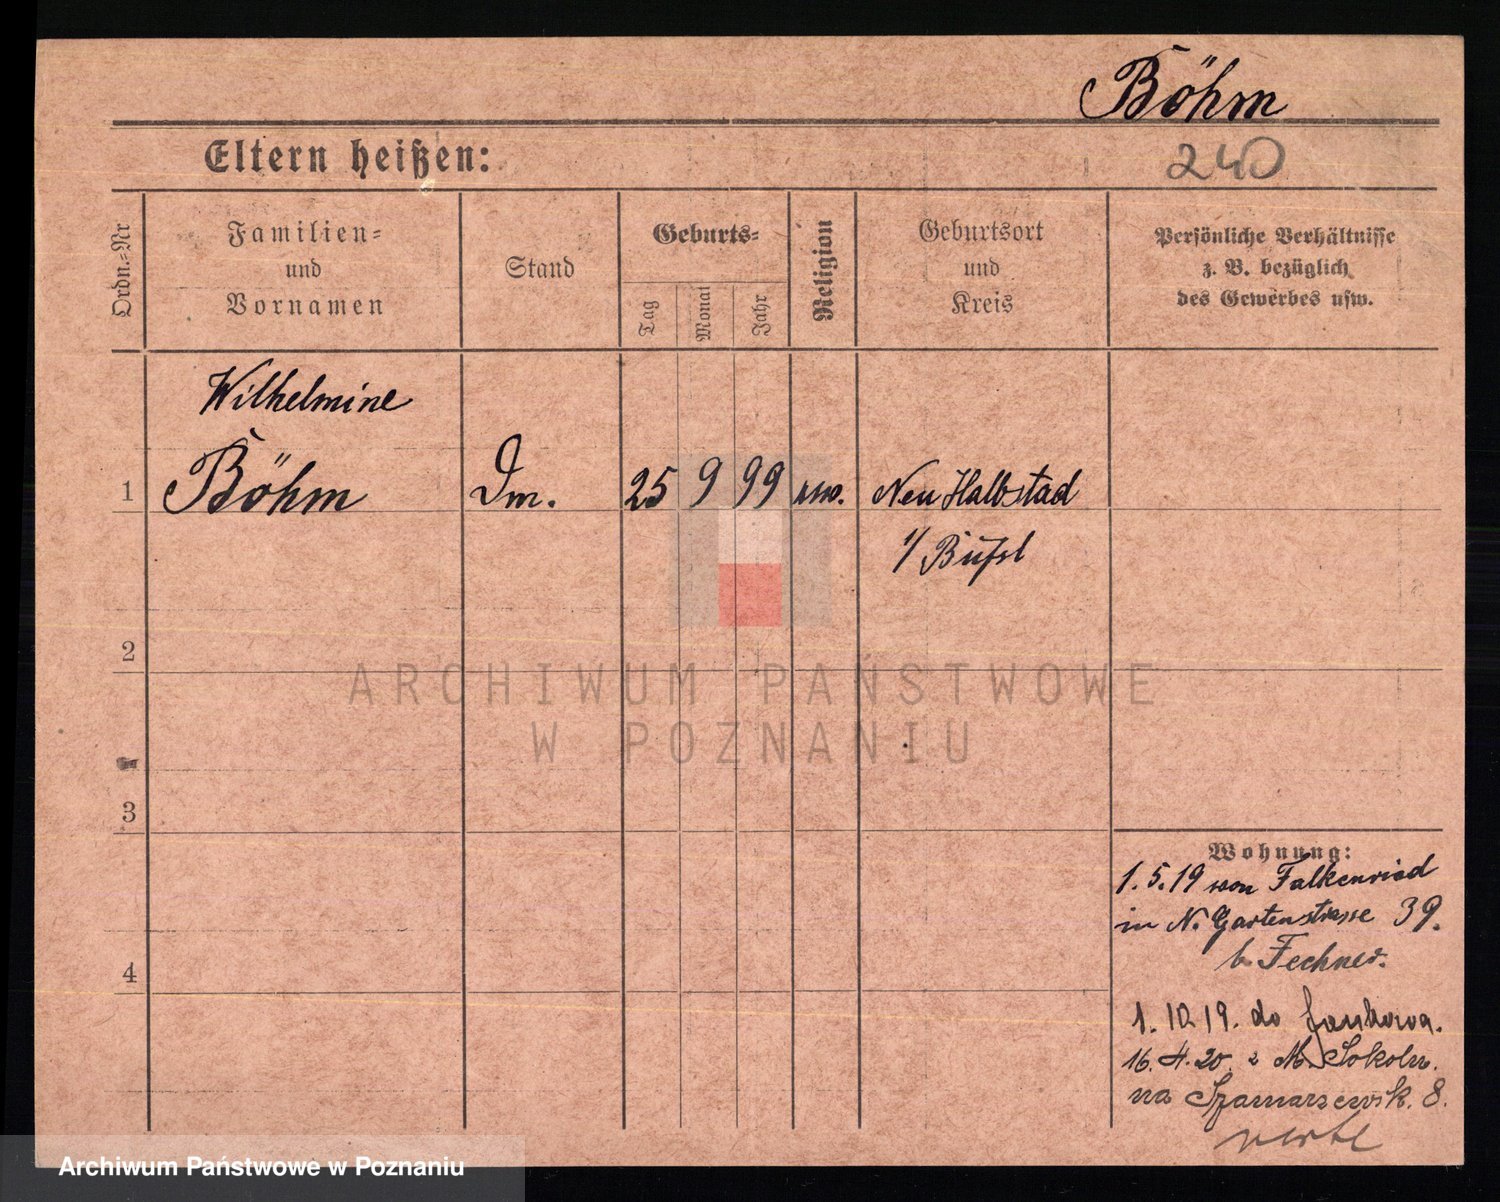 Böhm
Eltern heißen:
240
Ordn.-Nr
Familien-
und
Vornamen
Stand
Geburts-
Tag
Monat
Jahr
Religion
Geburtsort
und
Kreis
Persönliche Verhältnisse
z. B. bezüglich
des Gewerbes usw.
Wilhelmine
1 Böhm Dm. 25 9 99 Neu Halbstad
2
3
4
ARCHIWUM PAŃSTWOWE
W POZNANIU
Wohnung:
1.5.19 von Falkenried
in N. Gartenstrasse 39.
b. Fechner.
1.10.19. do Jankowa.
16.4.20. z M. Sokoln.
na Szamarzewsk. 8.
verte
Archiwum Państwowe w Poznaniu